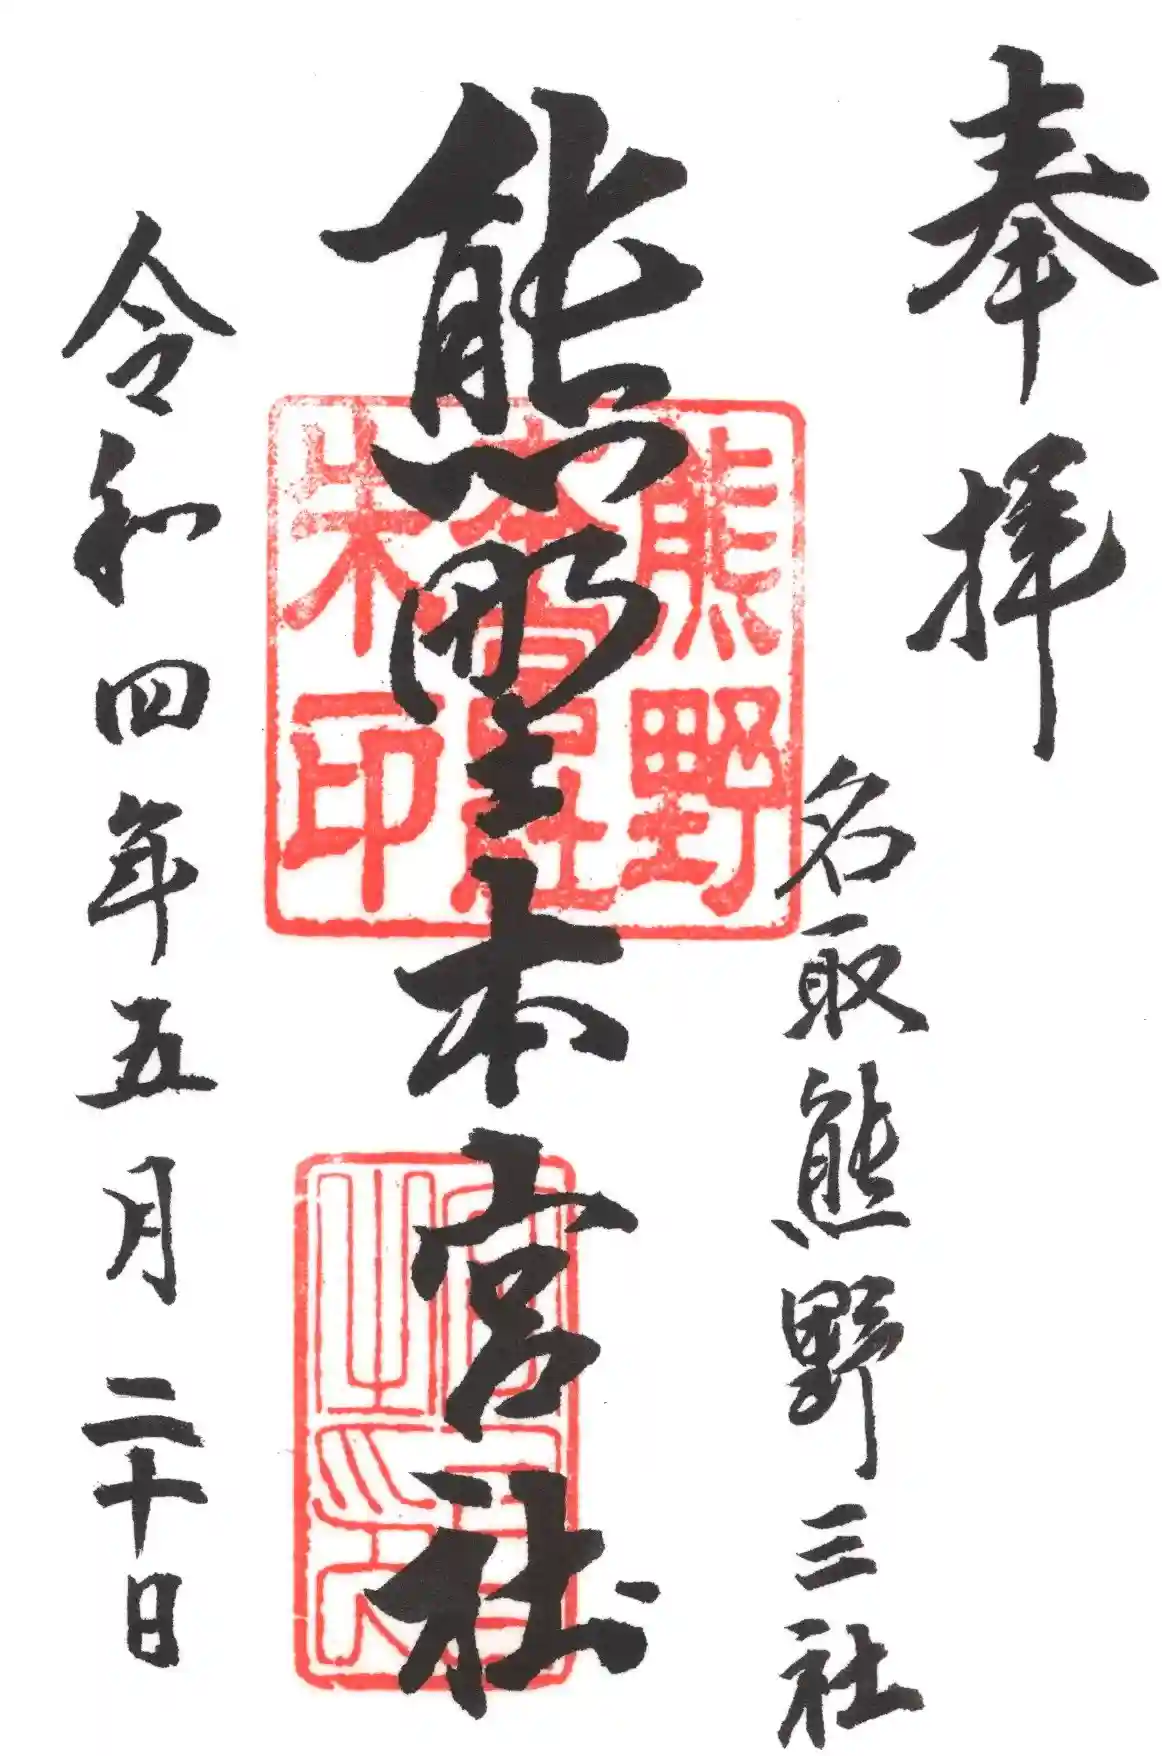 奉拝
名取熊野三社
熊野本宮社
熊野
本宮社
朱印
令和四年五月二十日